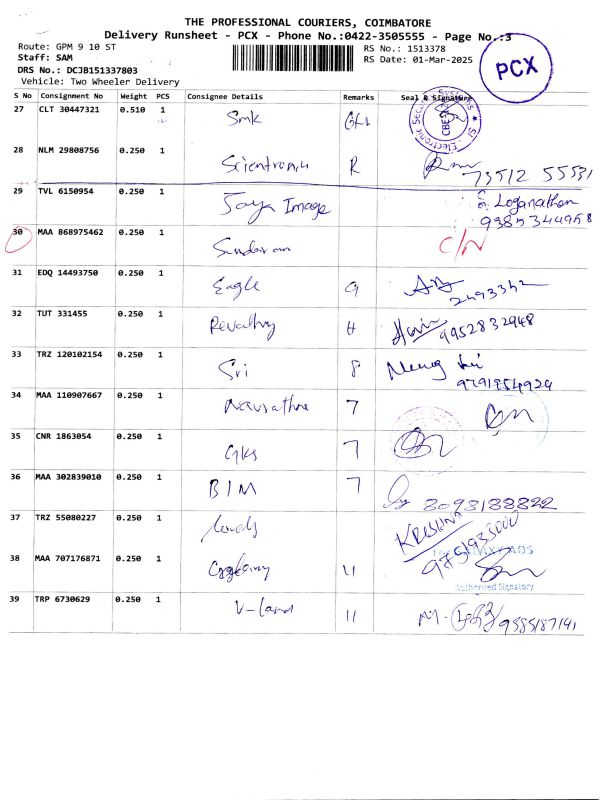 THE PROFESSIONAL COURIERS, COIMBATORE
Delivery Runsheet - PCX - Phone No.:0422-3505555 - Page No.:3
Route: GPM 9 10 ST
RS No.: 1513378
Staff: SAM
RS Date: 01-Mar-2025
DRS No.: DCJB151337803
Vehicle: Two Wheeler Delivery
PCX
S No Consignment No Weight PCS Consignee Details Remarks Seal & Signature
27 CLT 30447321 0.510 1 Smk
28 NLM 29808756 0.250 1 R
73512 55531
29 TVL 6150954 0.250 1 Jaya Image
S. Loganathan
9385344958
30 MAA 868975462 0.250 1 Sundaram C/N
31 EDQ 14493750 0.250 1 Eagle G
2493342
32 TUT 331455 0.250 1 Revathy H
9952832948
33 TRZ 120102154 0.250 1 Sri 8
34 MAA 110907667 0.250 1 7
35 CNR 1863054 0.250 1 GKS 7
36 MAA 302839010 0.250 1 BIM 7 8098188822
37 TRZ 55080227 0.250 1 KRISHNA
38 MAA 707176871 0.250 1 11
GALAXY ADS
Authorized Signatory
39 TRP 6730629 0.250 1 V-land 11 9585187141